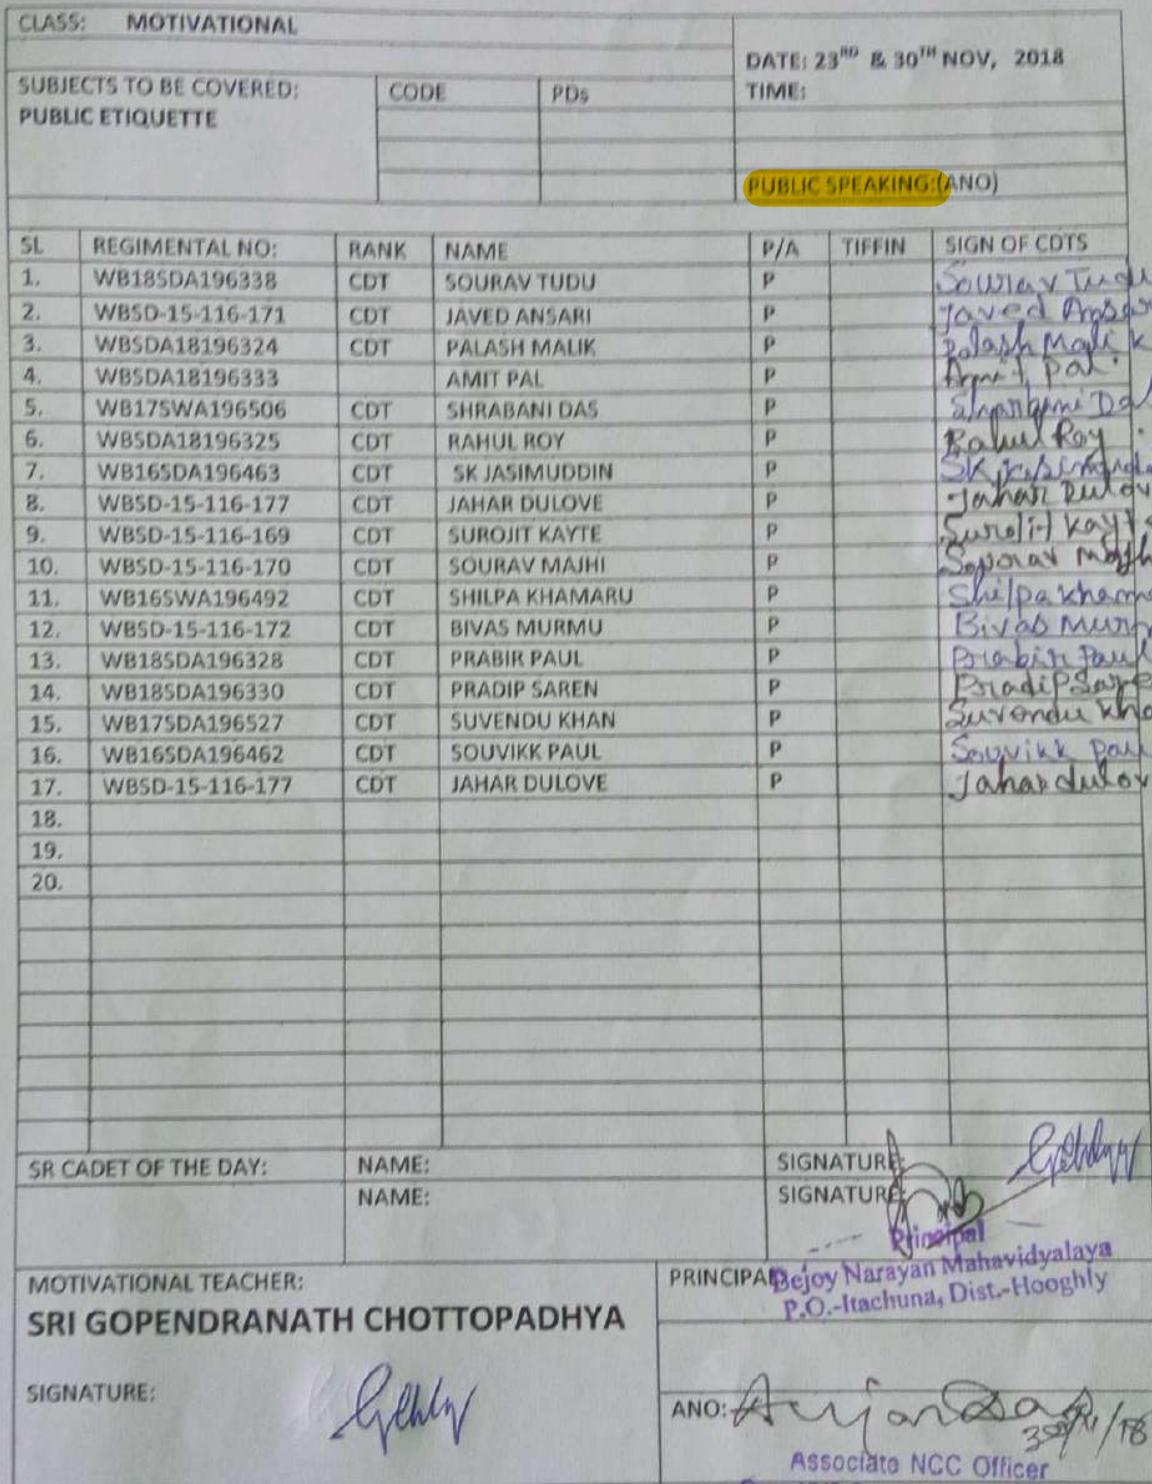 CLASS: MOTIVATIONAL
DATE: 23RD & 30TH NOV, 2018
SUBJECTS TO BE COVERED: CODE PDs TIME:
PUBLIC ETIQUETTE
PUBLIC SPEAKING:(ANO)
SL REGIMENTAL NO: RANK NAME P/A TIFFIN SIGN OF CDTS
1. WB18SDA196338 CDT SOURAV TUDU P Sourav Tudu
2. WBSD-15-116-171 CDT JAVED ANSARI P Javed Ansar
3. WBSDA18196324 CDT PALASH MALIK P Palash Malik
4. WBSDA18196333 AMIT PAL P Amit Pal.
5. WB17SWA196506 CDT SHRABANI DAS P
6. WBSDA18196325 CDT RAHUL ROY P Rahul Roy.
7. WB16SDA196463 CDT SK JASIMUDDIN P SK
8. WBSD-15-116-177 CDT JAHAR DULOVE P Jahar Dulov
9. WBSD-15-116-169 CDT SUROJIT KAYTE P Surojit Kayt
10. WBSD-15-116-170 CDT SOURAV MAJHI P Sourav Majh
11. WB16SWA196492 CDT SHILPA KHAMARU P Shilpa Kham
12. WBSD-15-116-172 CDT BIVAS MURMU P Bivas Murm
13. WB18SDA196328 CDT PRABIR PAUL P Prabir Paul
14. WB18SDA196330 CDT PRADIP SAREN P Pradip Sare
15. WB17SDA196527 CDT SUVENDU KHAN P Suvendu Kha
16. WB16SDA196462 CDT SOUVIKK PAUL P Souvikk Pau
17. WBSD-15-116-177 CDT JAHAR DULOVE P Jahar dulov
18.
19.
20.
SR CADET OF THE DAY: NAME: SIGNATURE:
NAME: SIGNATURE:
Principal
MOTIVATIONAL TEACHER: PRINCIPAL Bejoy Narayan Mahavidyalaya
P.O.-Itachuna, Dist.-Hooghly
SRI GOPENDRANATH CHOTTOPADHYA
SIGNATURE:
ANO: Arijan Das
30/11/18
Associate NCC Officer